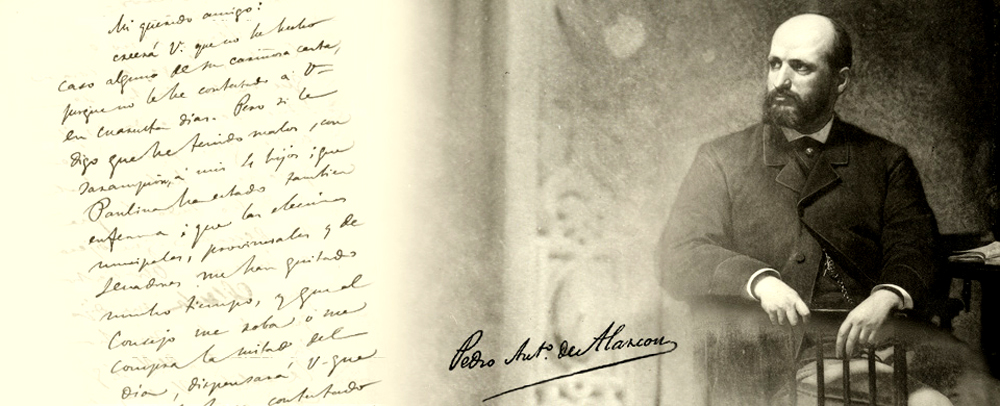 Mi querido amigo:
creerá V. que no he hecho
caso alguno de su cariñosa carta,
porque no le he contestado á V—
en cuarenta días. Pero si le
digo que he tenido malos, con
sarampion, á mis 4 hijos; que
Paulina ha estado tambien
enferma; que las elecciones
municipales, provinciales y de
Senadores me han quitado
mucho tiempo, y que el
Consejo me roba ó me
compra la mitad del
día, dispensará V. que
contestado
Pedro Antº. de Alarcon